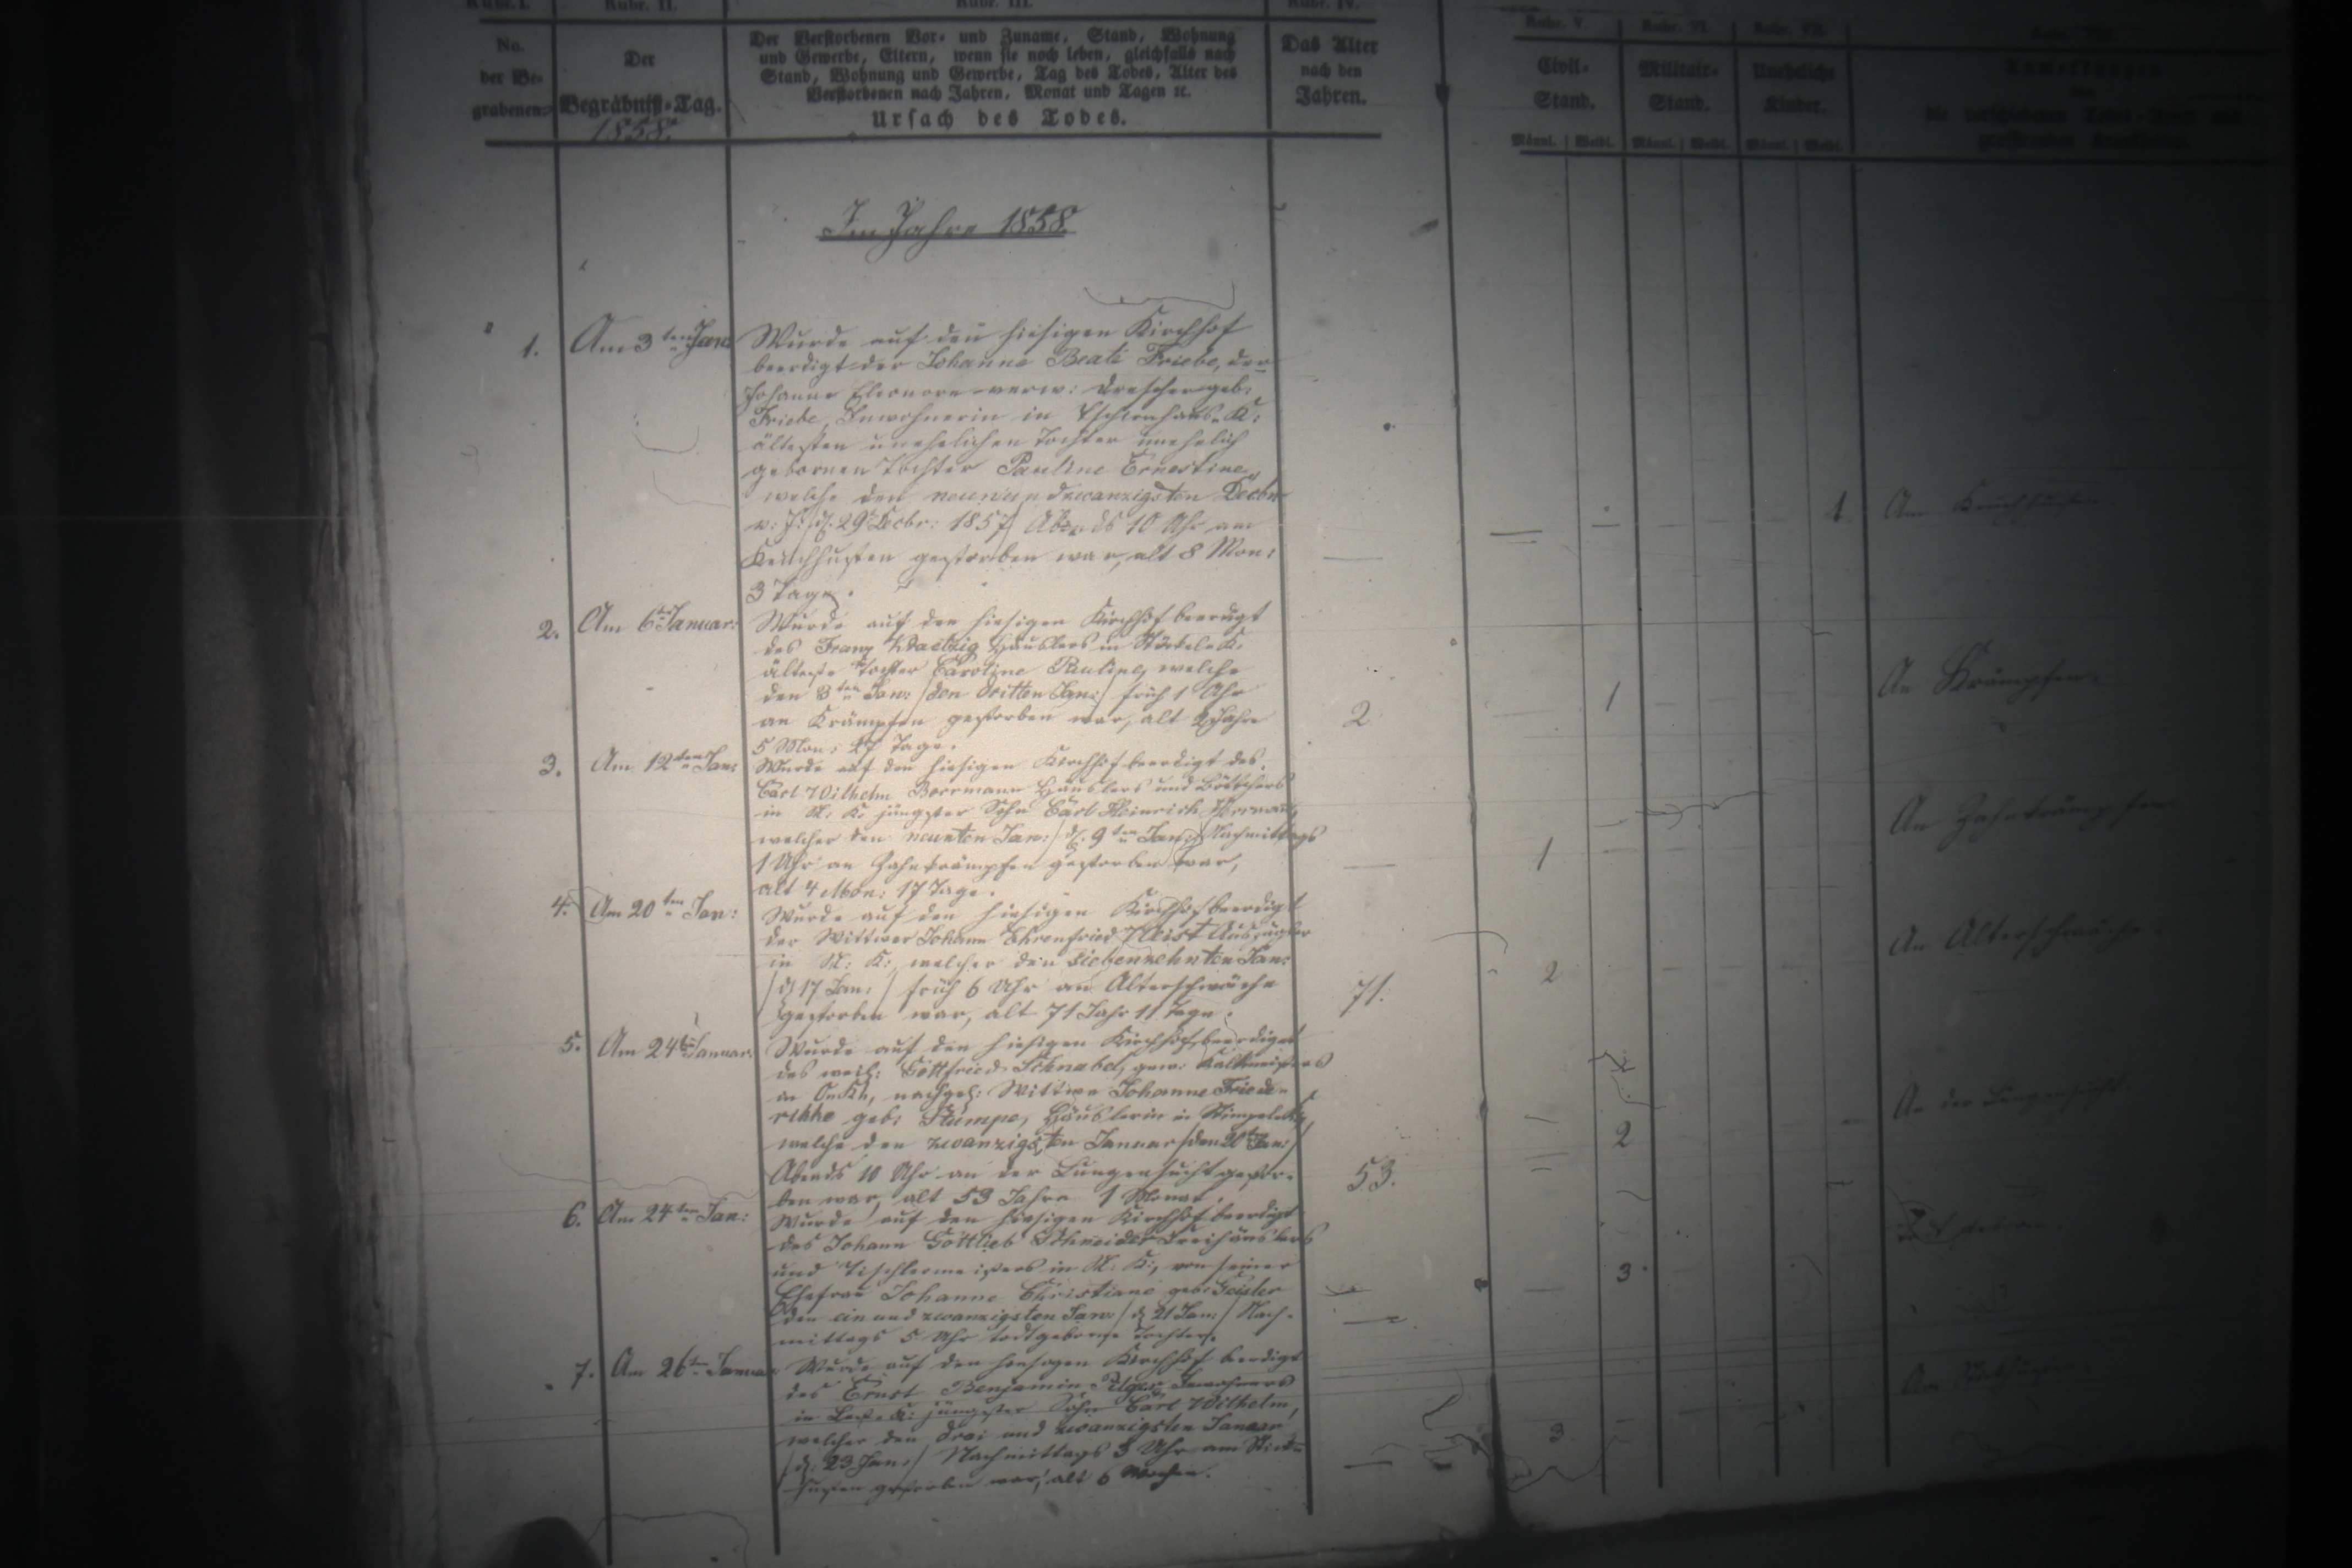 Rubr. I. Rubr. II. Rubr. III. Rubr. IV. Rubr. V. Rubr. VI. Rubr. VII.
No. der Be-grabenen.
Der Begräbniß-Tag.
1858.
Der Verstorbenen Vor- und Zuname, Stand, Wohnung
und Gewerbe, Eltern, wenn sie noch leben, gleichfalls nach
Stand, Wohnung und Gewerbe, Tag des Todes, Alter des
Verstorbenen nach Jahren, Monat und Tagen ꝛc.
Ursach des Todes.
Das Alter
nach den
Jahren.
Civil-
Stand.
Männl. Weibl.
Militair-
Stand.
Männl. Weibl.
Uneheliche
Kinder.
Männl. Weibl.
Anmerkungen
Im Jahre 1858.
1. Am 3ten Jan:
Wurde auf den hiesigen Kirchhof
beerdigt der Johanne Beate Friebe, der
Johanne Eleonore verw: Drescher geb:
Friebe, Inwohnerin in
ältesten unehelichen Tochter unehelich
gebornen Tochter Pauline Ernestine,
welche den neunundzwanzigsten Decbr:
v: J: /d. 29 Decbr: 1857/ Abends 10 Uhr am
Keuchhusten gestorben war, alt 8 Mon:
3 Tage.
1 Am Keuchhusten
2. Am 6ten Januar:
Wurde auf den hiesigen Kirchhof beerdigt
des Franz Häuslers in
älteste Tochter Caroline Pauline, welche
den 3ten Jan: /den dritten Jan:/ früh 1 Uhr
an Krämpfen gestorben war, alt 2 Jahre
5 Mon: 27 Tage.
2 1 An Krämpfen.
3. Am 12ten Jan:
Wurde auf den hiesigen Kirchhof beerdigt des
Carl Wilhelm Borrmann Häuslers und Böttchers
in K: jüngster Sohn Carl Heinrich
welcher den neunten Jan: /d. 9ten Jan:/ Nachmittags
1 Uhr an Zahnkrämpfen gestorben war,
alt 4 Mon: 17 Tage.
1 An Zahnkrämpfen
4. Am 20ten Jan:
Wurde auf den hiesigen Kirchhof beerdigt
der Wittwer Johann Ehrenfried Auszügler
in K: welcher den siebenzehnten Jan:
/d 17 Jan:/ früh 6 Uhr an Altersschwäche
gestorben war, alt 71 Jahr 11 Tage.
71. 2 An Altersschwäche.
5. Am 24ten Januar:
Wurde auf den hiesigen Kirchhof beerdigt
des weil: Gottfried Schnabel, gew:
in nachgel: Wittwe Johanne Friede-
rikke geb: Stumpe, Häuslerin in
welche den zwanzigsten Januar /den 20ten Jan:/
Abends 10 Uhr an der Lungensucht gestor-
ben war, alt 53 Jahre 1 Monat.
53. 2 An der Lungensucht
6. Am 24ten Jan:
Wurde auf den hiesigen Kirchhof beerdigt
des Johann Gottlieb Schneider Freihäuslers
und Tischlermeisters in K:, von seiner
Ehefrau Johanne Christiane geb: Geisler
den ein und zwanzigsten Jan: /d 21 Jan:/ Nach-
mittags 5 Uhr todtgeborne Tochter.
3. Todt geboren.
7. Am 26ten Januar
Wurde auf den hiesigen Kirchhof beerdigt
des Ernst Benjamin Inwohners
in K: jüngster Sohn Carl Wilhelm,
welcher den drei und zwanzigsten Januar
/d. 23 Jan:/ Nachmittags 3 Uhr am Stick-
husten gestorben war, alt 6 Wochen.
3. Am Stickhusten.